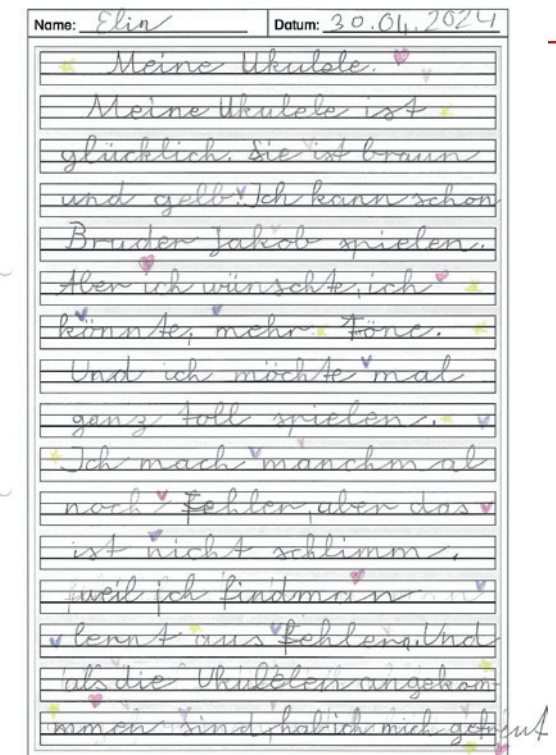 Name: Elin Datum: 30.04.2024
Meine Ukulele.
Meine Ukulele ist
glücklich. Sie ist braun
und gelb. Ich kann schon
Bruder Jakob spielen.
Aber ich wünschte, ich
könnte, mehr Töne.
Und ich möchte mal
ganz toll spielen.
Ich mach manchmal
noch Fehler, aber das
ist nicht schlimm,
weil ich find man
lernt aus Fehlern. Und
als die Ukulelen angekom-
mmen sind hab ich mich gefreut